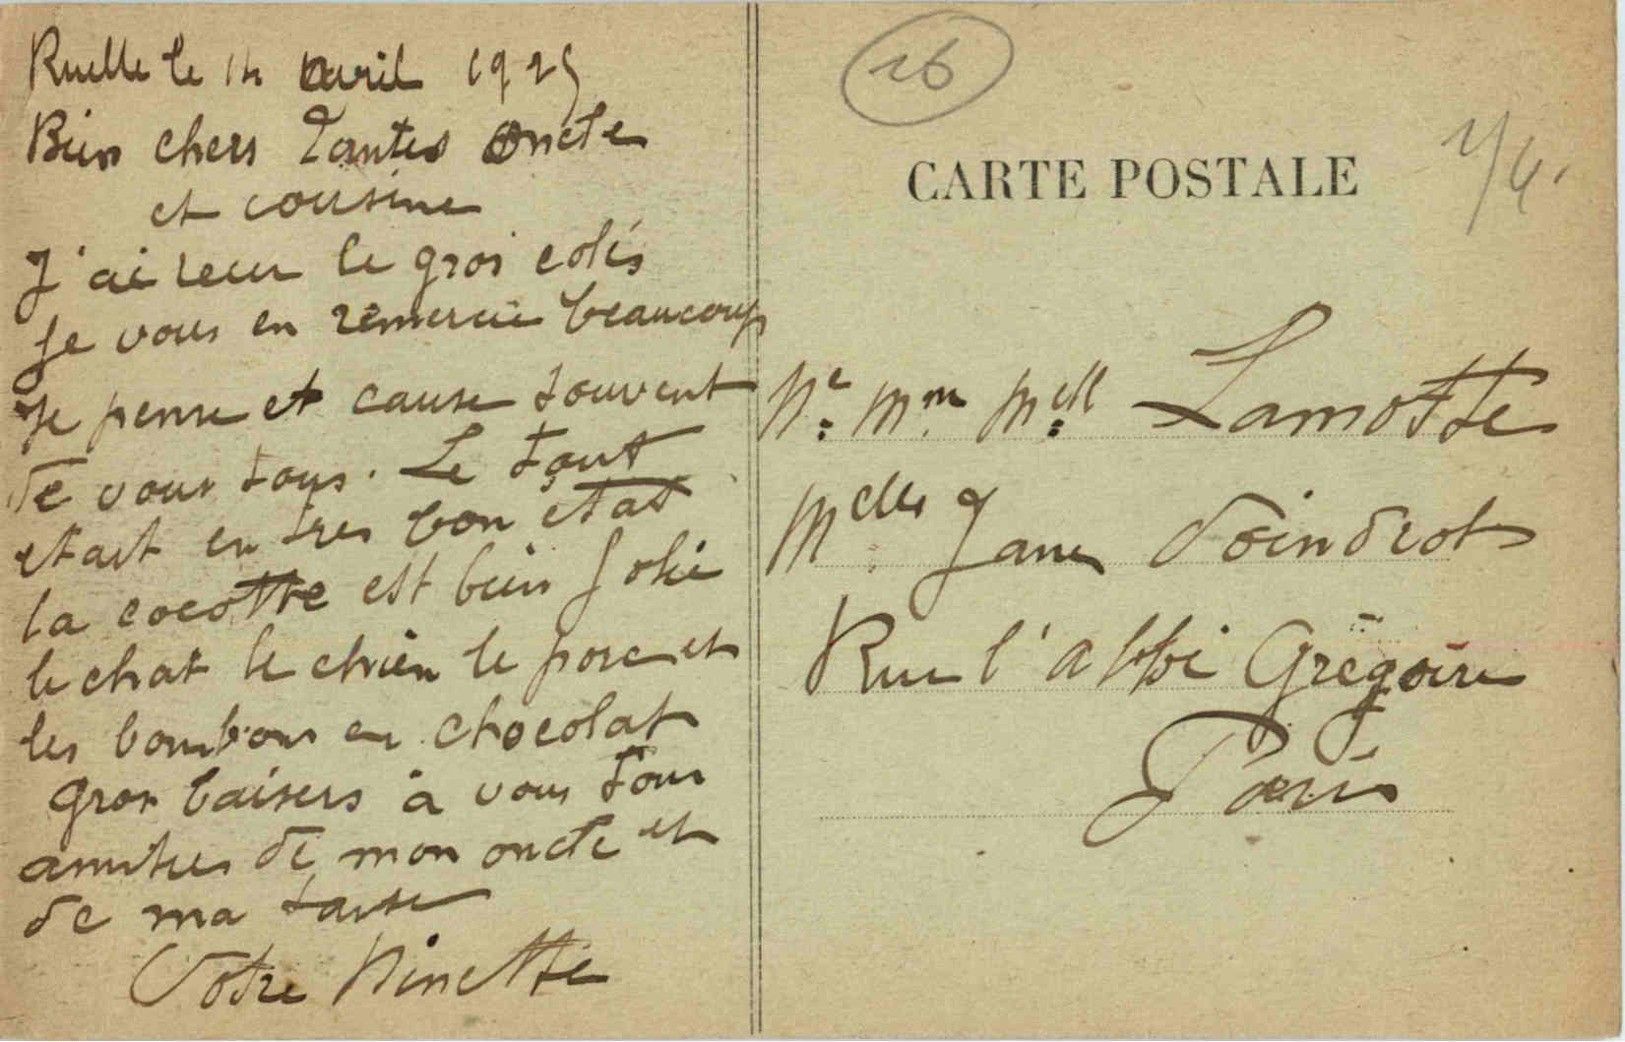 Ruelle le 14 avril 1925
Bien chers Tantes oncle
et cousine
J'ai recu le gros colis
Je vous en remercie beaucoup
Je pense et cause souvent
de vous tous. Le tout
etait en tres bon etat
la cocotte est bien jolie
le chat le chien le porc et
les bonbons en chocolat
Gros baisers à vous tous
amities de mon oncle et
de ma tante
Votre Ninette
26
CARTE POSTALE
Mr. Mme Mell Lamotte
Melles Jane Doindrot
Rue l'abbé Grégoire
Paris